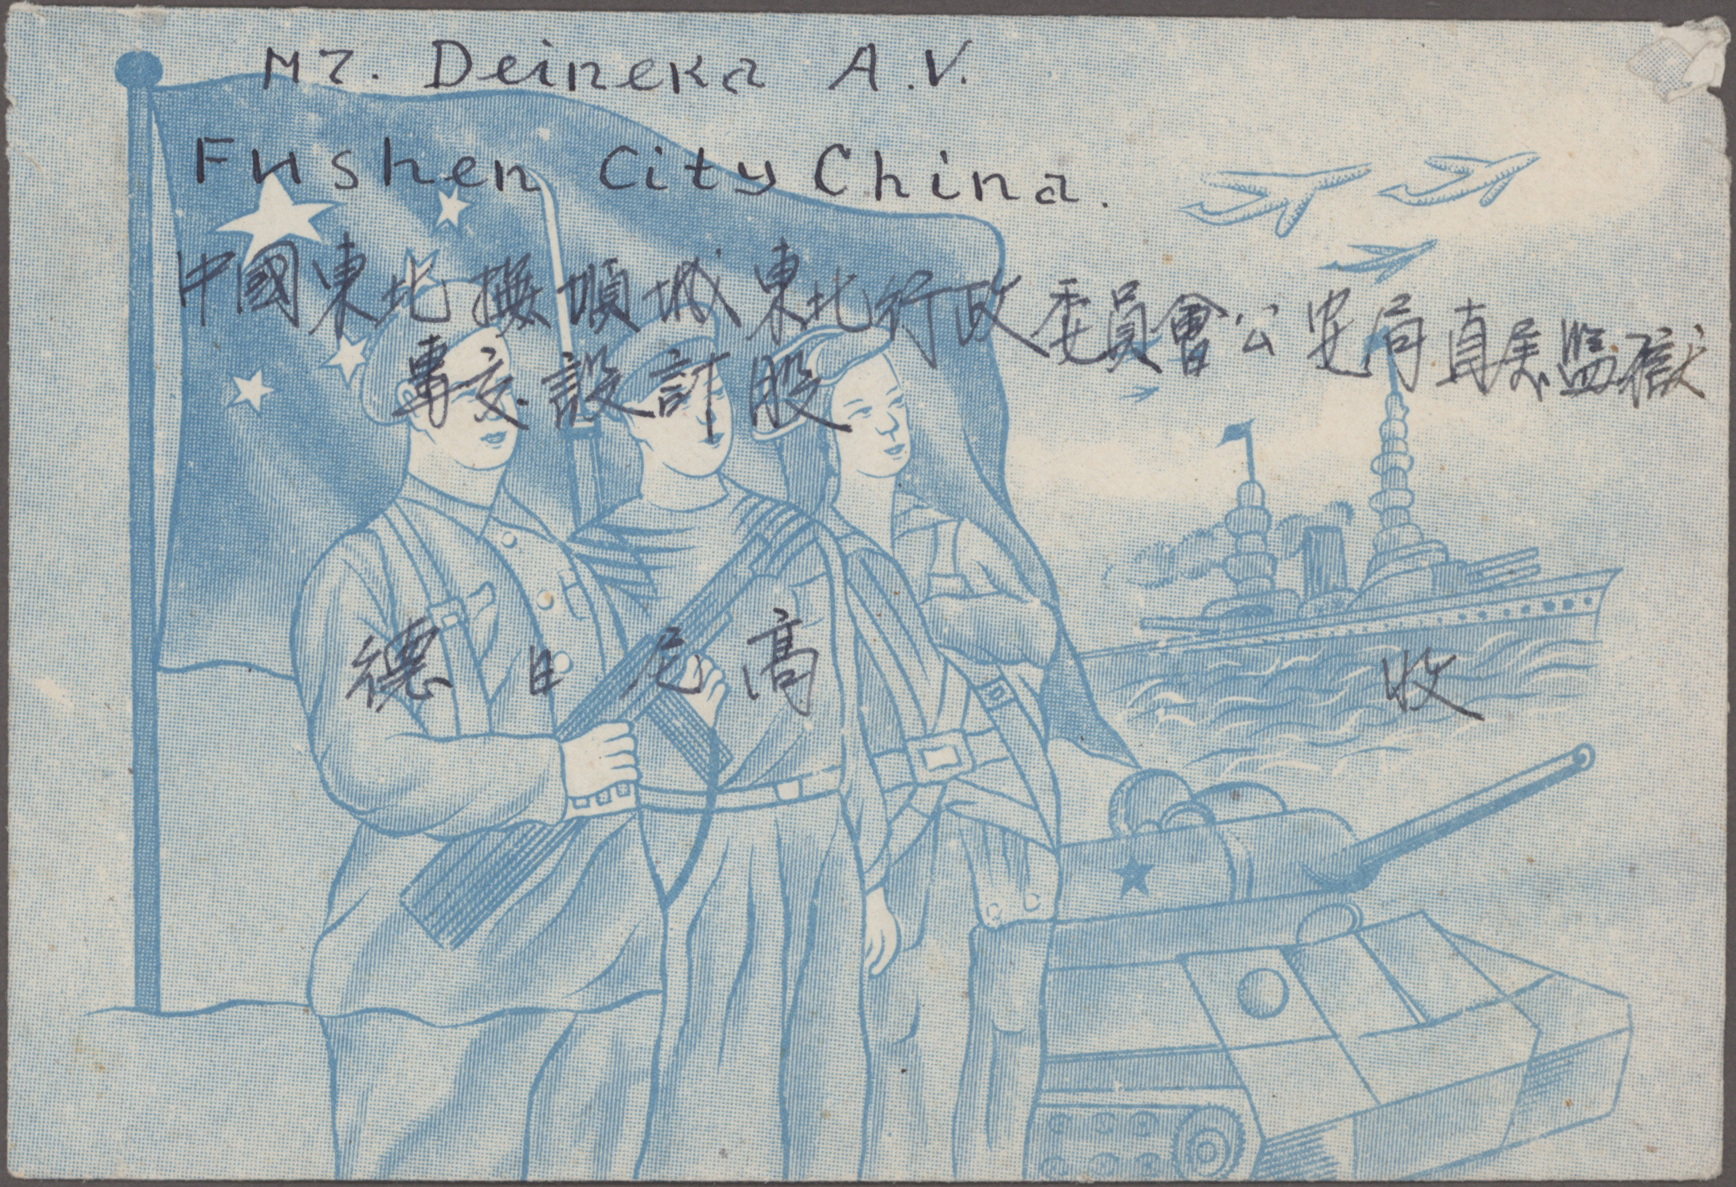 Mr. Deineka A.V.
Fushen City China.
中國東北撫順城東北行政委員會公安局直属監獄
專交設計股
德日尼高 收